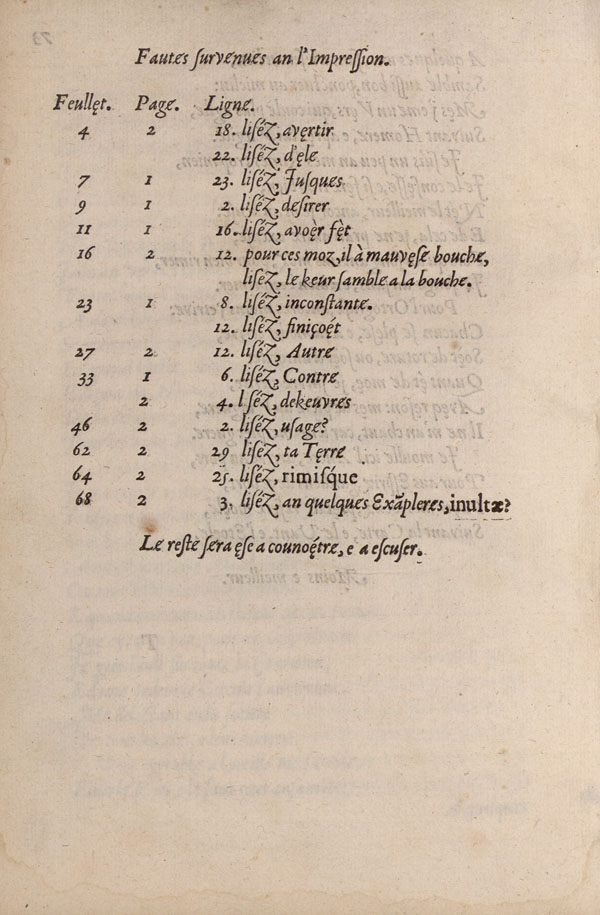 Fautes survenues an l'Impreſsion.
Feullęt. Page. Ligne.
4 2 18. liséZ, avęrtir
22. liséZ, d'ęle
7 1 23. liséZ, Juſques
9 1 2. liséZ, deſirer
11 1 16. liséZ, avoęr fęt
16 2 12. pour ces moz, il à mauvęſe bouche,
liſéZ, le keur ſamble a la bouche.
23 1 8. liſéZ, inconſtante.
12. liſéZ, finiçoęt
27 2 12. liſéZ, Autre
33 1 6. liſéZ, Contre
2 4. l ſéZ, dekeuvres
46 2 2. liſéZ, uſage?
62 2 29 liſéZ, ta Tęrre
64 2 25. liſéZ, rimiſque
68 2 3. liſéZ, an quelques Exãpleres, inultæ?
Le reſte ſera ęſe a counoętre, e a eſcuſer.